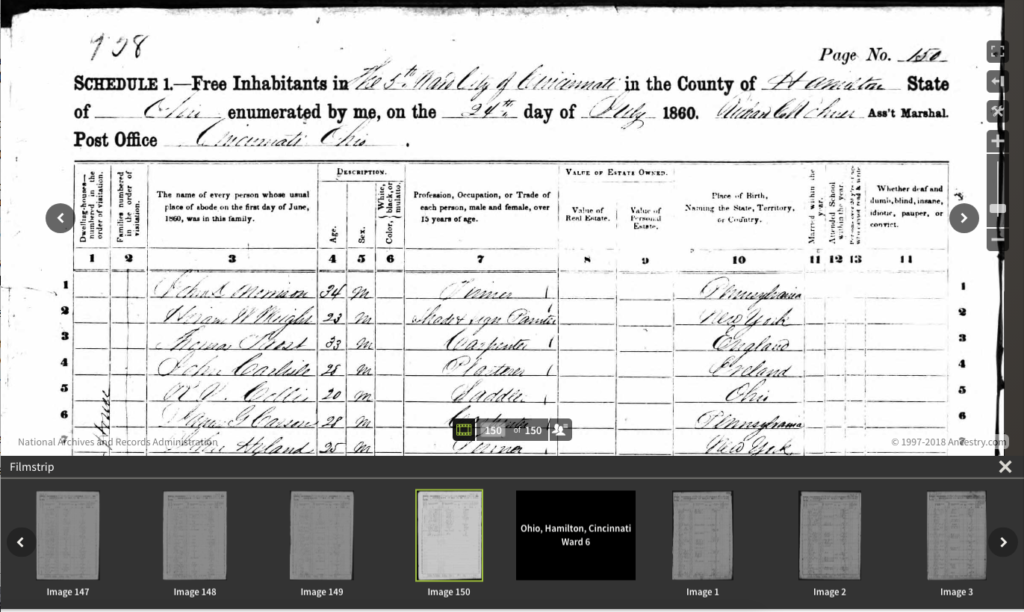 958
Page No. 150
SCHEDULE 1.—Free Inhabitants in The 5th Ward City of Cincinnati in the County of Hamilton State
of Ohio enumerated by me, on the 24th day of July 1860. Ass't Marshal.
Post Office Cincinnati Ohio.
DESCRIPTION.
VALUE OF ESTATE OWNED.
Dwelling-houses— numbered in the order of visitation.
Families numbered in the order of visitation.
The name of every person whose usual place of abode on the first day of June, 1860, was in this family.
Age.
Sex.
Color, White, black, or mulatto.
Profession, Occupation, or Trade of each person, male and female, over 15 years of age.
Value of Real Estate.
Value of Personal Estate.
Place of Birth, Naming the State, Territory, or Country.
Married within the year.
Attended School within the year.
Whether deaf and dumb, blind, insane, idiotic, pauper, or convict.
1 2 3 4 5 6 7 8 9 10 11 12 13 14
1 John S Morrison 34 m 1 Pennsylvania 1
2 Hiram W Wright 23 m Sign Painter New York 2
3 33 m Carpenter England 3
4 John Carlisle 28 m Plasterer Ireland 4
5 20 m Saddler Ohio 5
6 G Carson 28 m Pennsylvania 6
7 Hyland 25 m New York 7
National Archives and Records Administration
150 of 150
© 1997-2018 Ancestry.com
Filmstrip
Ohio, Hamilton, Cincinnati
Ward 6
Image 147 Image 148 Image 149 Image 150 Image 1 Image 2 Image 3